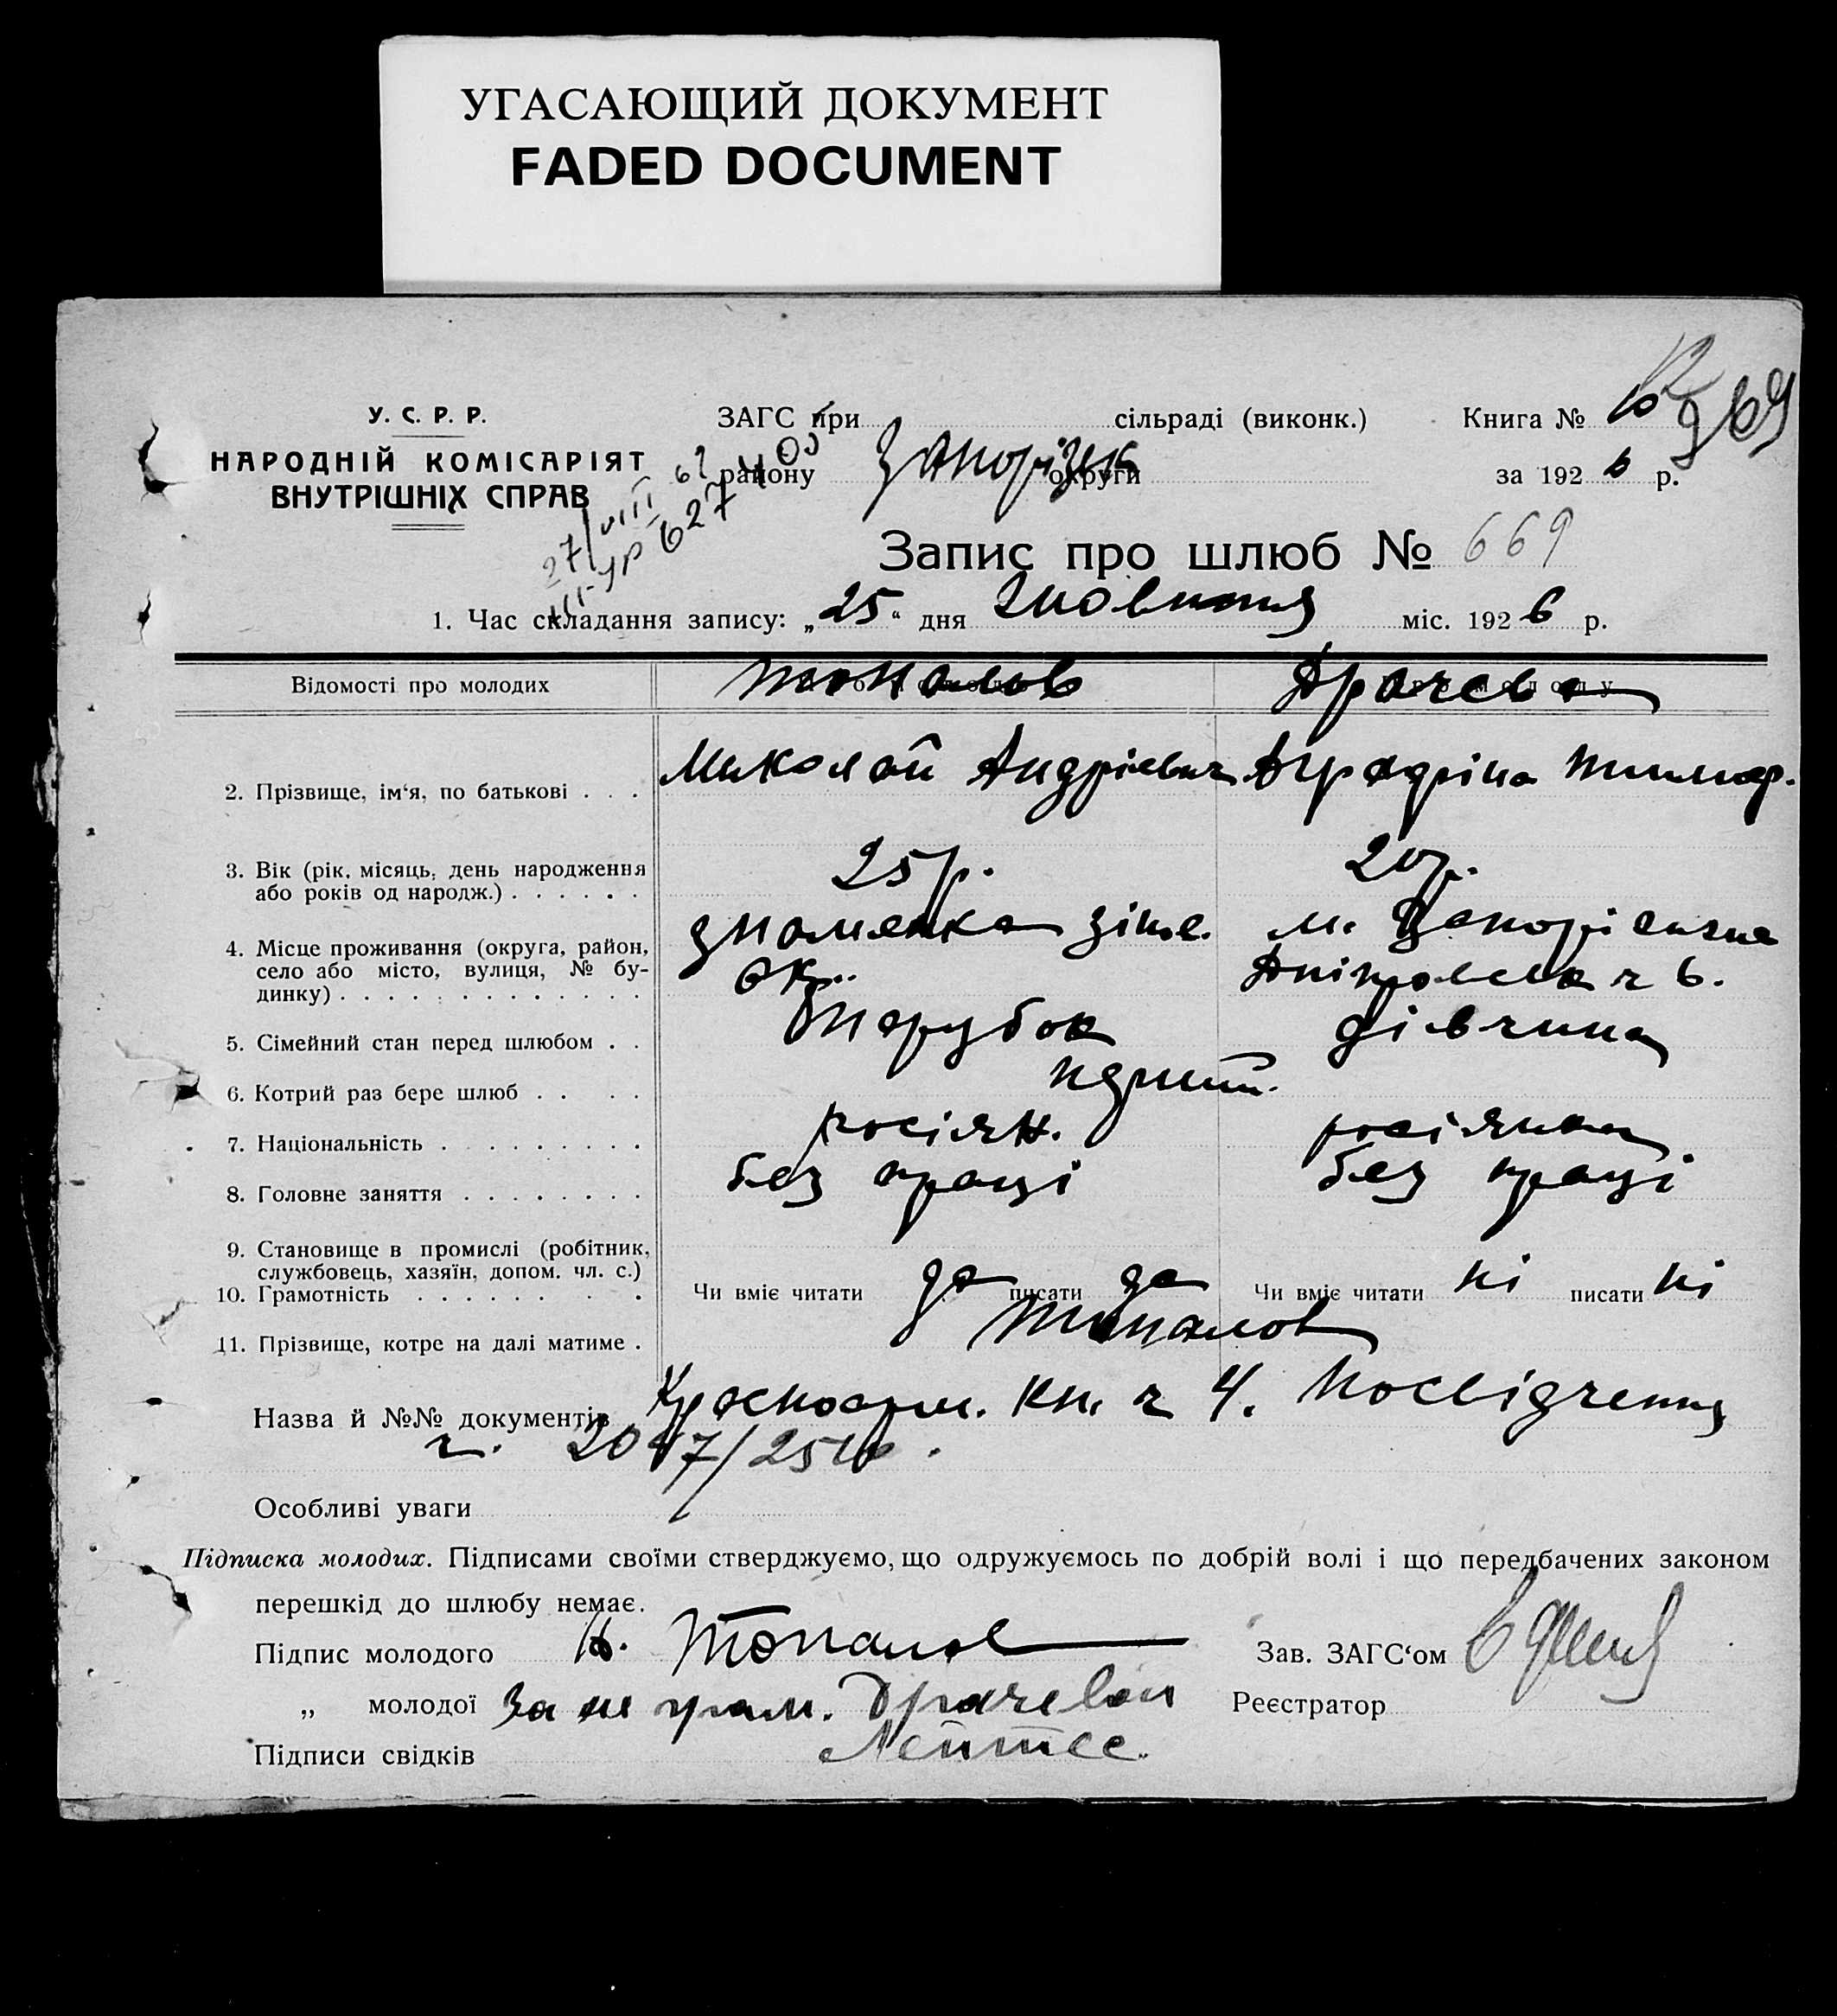 УГАСАЮЩИЙ ДОКУМЕНТ
FADED DOCUMENT
У. С. Р. Р.
НАРОДНІЙ КОМІСАРІЯТ
ВНУТРІШНІХ СПРАВ
27/VIII
627
ЗАГС при сільраді (виконк.) Книга №
району Запорізьк округи за 1926 р.
969
Запис про шлюб № 669
1. Час складання запису: „25“ дня Жовтня міс. 1926 р.
Відомості про молодих Топалов Драчева
2. Прізвище, ім‘я, по батькові . . . Миколай Андрієвич Аграфіна Тимоф.
3. Вік (рік, місяць, день народження 25 р. 20 р.
або років од народж.) . . . . . .
4. Місце проживання (округа, район, Знаменка Зінов. м. Запоріжжя
село або місто, вулиця, № бу- Окр. Дніпровська ч 6.
динку) . . . . . . . . . . . . .
5. Сімейний стан перед шлюбом . . Парубок дівчина
6. Котрий раз бере шлюб . . . . перший.
7. Національність . . . . . . . . . росіян. росіянка
8. Головне заняття . . . . . . . . без праці без праці
9. Становище в промислі (робітник,
службовець, хазяїн, допом. чл. с.)
10. Грамотність . . . . . . . . Чи вміє читати да писати да Чи вміє читати ні писати ні
11. Прізвище, котре на далі матиме . Топалов
Назва й №№ документів Красноарм. кн. ч 4. Посвідчення
ч.
Особливі уваги
Підписка молодих. Підписами своїми стверджуємо, що одружуємось по добрій волі і що передбачених законом
перешкід до шлюбу немає.
Підпис молодого Н. Топалов Зав. ЗАГС‘ом
„ молодої За не грам. Драчевой Реєстратор
Підписи свідків